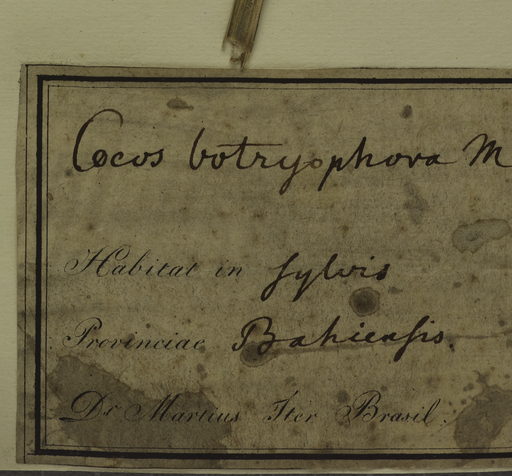 Cocos botryophora M
Habitat in sylvis
Provinciae Bahiensis.
Dr. Martius Iter Brasil.